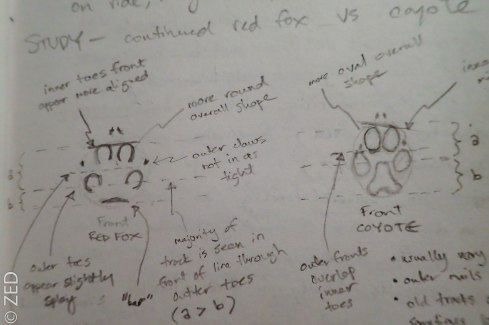 on ride,
STUDY – continued red fox vs coyote
inner toes front
appear more aligned
more round
overall shape
outer claws
not in as
tight
Front
RED FOX
outer toes
appear slightly
splay
"bar"
majority of
track is seen in
front of line through
outter toes
(a > b)
more oval overall
shape
a
b
Front
COYOTE
outer fronts
overlap
inner
toes
• usually very
• outer nails
• old tracks
© ZED